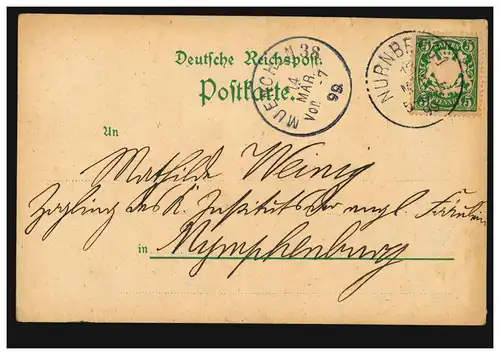 Deutsche Reichspost.
Postkarte.
MUENCHEN 38
14
MAR.
VOR 7
98
NÜRNBE
5 BAYERN 5
5 PFENNIG 5
An
Mathilde Weinig
Zögling des K. Instituts der engl. Fräulein
in Nymphenburg